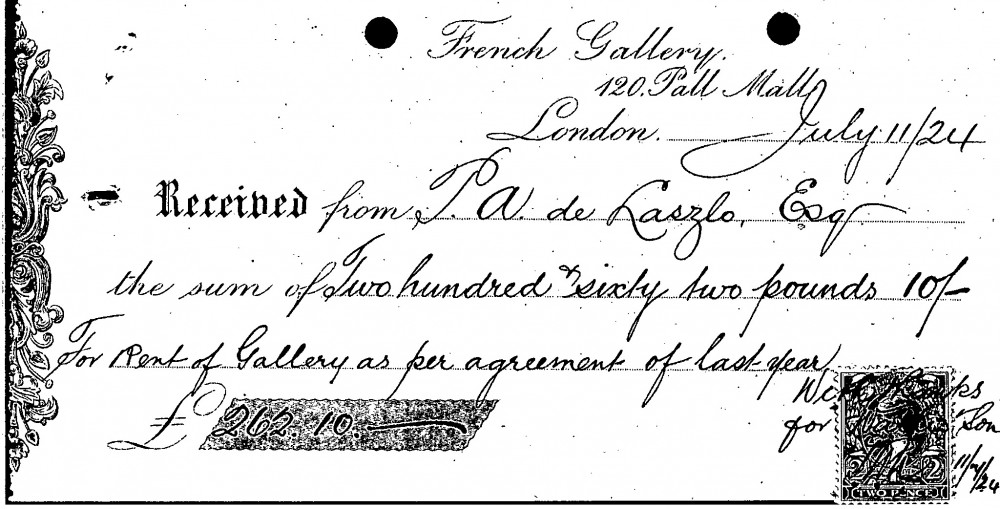 French Gallery.
120. Pall Mall
London. July 11/24
Received from P. A. de Laszlo, Esq
the sum of Two hundred & sixty two pounds 10/-
For Rent of Gallery as per agreement of last year
With
£ 262. 10. —
for Son
2 2
TWO PENCE
11/7/24